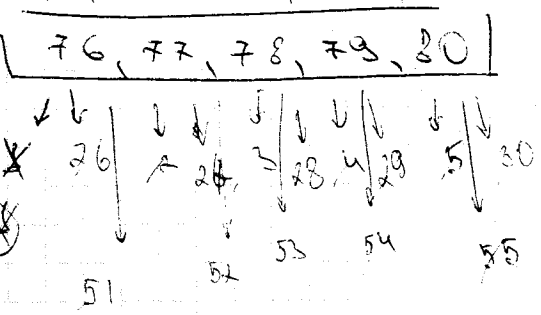 76, 77, 78, 79, 80
26 28, 4 29 5 30
51 52 53 54 55